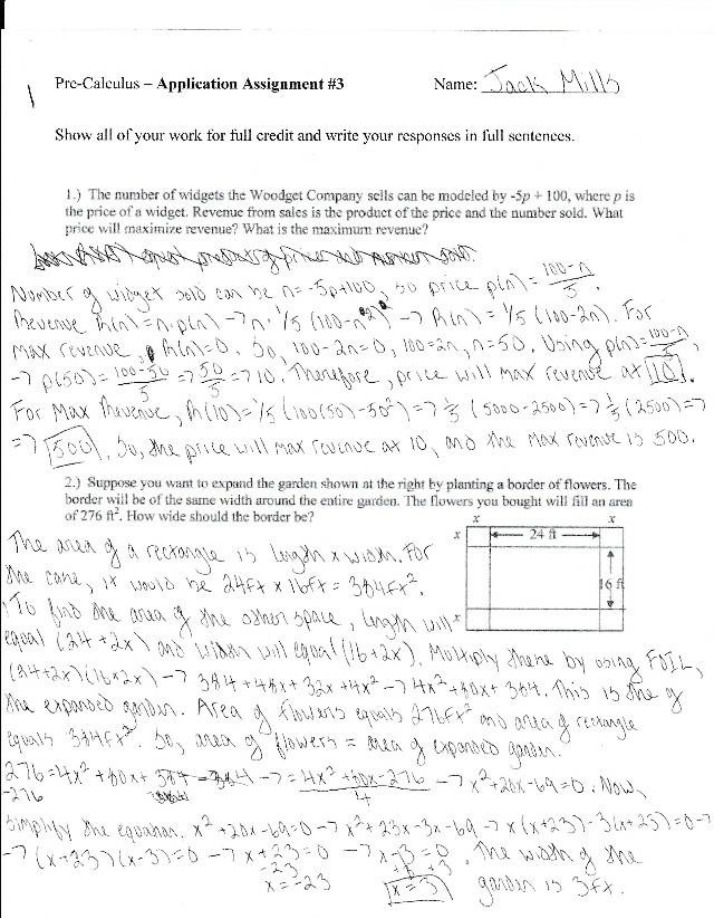 Pre-Calculus – Application Assignment #3 Name: Jack Mills
Show all of your work for full credit and write your responses in full sentences.
1.) The number of widgets the Woodget Company sells can be modeled by -5p + 100, where p is
the price of a widget. Revenue from sales is the product of the price and the number sold. What
price will maximize revenue? What is the maximum revenue?
Number of widget sold can be n=-5p+100, so price p(n)= 100-n/5.
Revenue R(n)=n·p(n) -> n·1/5(100-n²) -> R(n)=1/5(100-2n). For
max revenue, R(n)=0. So, 100-2n=0, 100=2n, n=50. Using p(n)=100-n/5,
-> p(50)= 100-50/5 => 50/5 => 10. Therefore, price will max revenue at 10.
For Max Revenue, R(10)=1/5(100(50)-50²) => 1/5(5000-2500) => 1/5(2500) =>
=> 500. So, the price will max revenue at 10, and the max revenue is 500.
2.) Suppose you want to expand the garden shown at the right by planting a border of flowers. The
border will be of the same width around the entire garden. The flowers you bought will fill an area
of 276 ft². How wide should the border be?
x x
x 24 ft
16 ft
x
The area of a rectangle is length x width. For
the cane, it would be 24ft x 16ft = 384ft².
To find the area of the other space, length will
equal (24+2x) and width will equal (16+2x). Multiply these by using FOIL,
(24+2x)(16+2x) -> 384+48x+32x+4x² -> 4x²+80x+384. This is the of
the expanded garden. Area of flowers equals 276ft² and area of rectangle
equals 384ft². So, area of flowers = area of expanded garden.
276=4x²+80x+384-384 -> =4x²+80x-276/4 -> x²+20x-69=0. Now,
-276
simplify the equation. x²+20x-69=0 -> x²+23x-3x-69 -> x(x+23)-3(x+23)=0 ->
-> (x+23)(x-3)=0 -> x+23=0 -> x-3=0. The width of the
-23 +3 +3
x=-23 x=3 garden is 3ft.